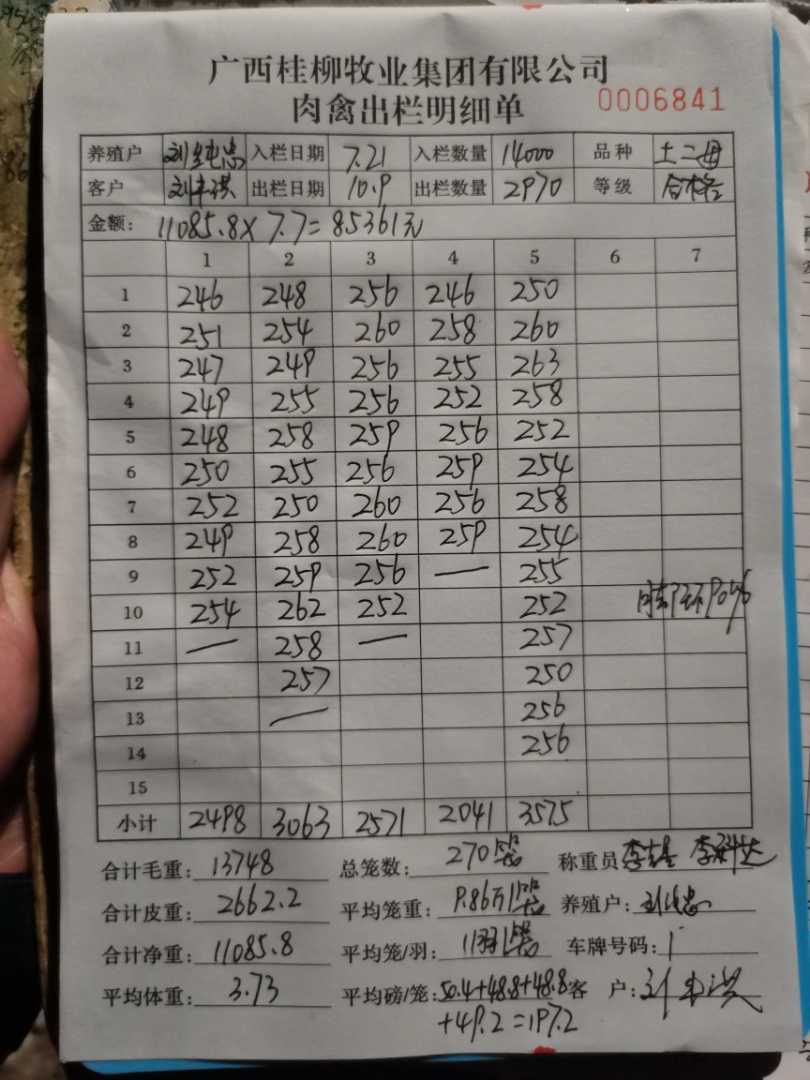 广西桂柳牧业集团有限公司
肉禽出栏明细单 0006841
养殖户 入栏日期 7.21 入栏数量 14000 品种 土二母
客户 出栏日期 10.9 出栏数量 2970 等级 合格
金额: 11085.8×7.7=85361元
1 2 3 4 5 6 7
1 246 248 256 246 250
2 251 254 260 258 260
3 247 249 256 255 263
4 249 255 256 252 258
5 248 258 259 256 252
6 250 255 256 259 254
7 252 250 260 256 258
8 249 258 260 259 254
9 252 259 256 — 255
10 254 262 252 252
11 — 258 — 257
12 257 250
13 — 256
14 256
15
小计 2498 3063 2571 2041 3575
合计毛重: 13748 总笼数: 270笼 称重员
合计皮重: 2662.2 平均笼重: 9.86斤/笼 养殖户:
合计净重: 11085.8 平均笼/羽: 11羽/笼 车牌号码:
平均体重: 3.73 平均磅/笼: 50.4+48.8+48.8 客户:
+49.2=197.2